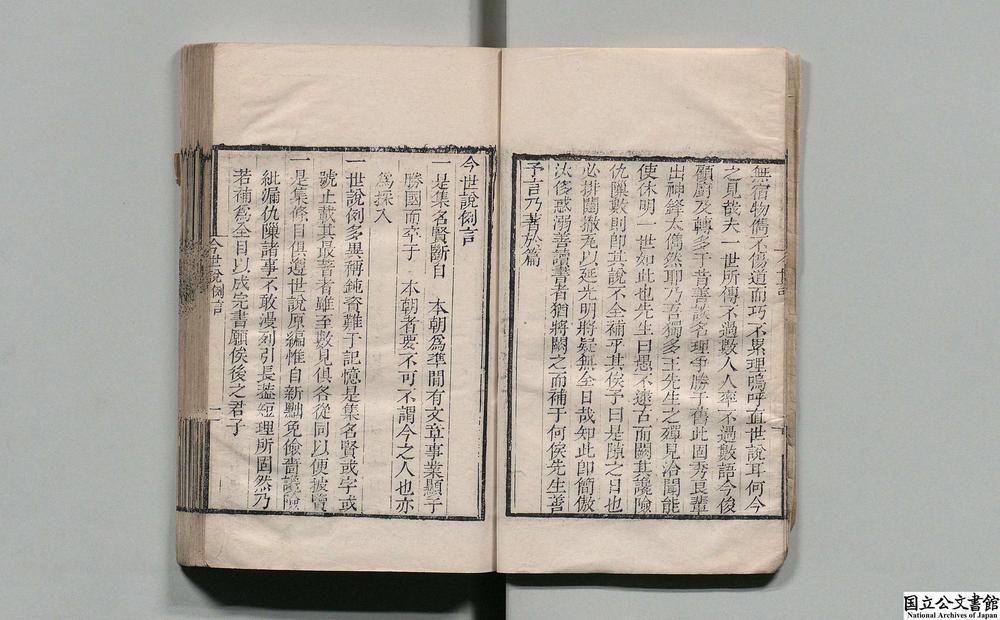 無宿物雋不傷道而巧不累理嗚呼直世說耳何今
之貝哉夫一世所傳不過數人人率不過數語今後
顧廚及轉多于昔善談名理爭勝于舊此固秀良輩
出神鋒太雋然耶乃吾獨多王先生之殫見洽聞能
使休明一世如此也先生曰愚不逮古而闕其讒險
仇隟數則即其說不全補乎其俟予曰是隙之日也
必排闥撤瓦以延光明將疑無全日哉知此即簡傲
汰侈惑溺善讀書者猶將闕之而補于何俟先生善
予言乃著於篇
今世說例言
一是集名賢斷自　本朝爲準間有文章事業顯于
勝國而卒于　本朝者要不可不謂今之人也亦
爲採入
一世說例多異稱鈍資難于記憶是集名賢或字或
號止載其最著者雖至數見俱各從同以便披覽
一是集條目俱遵世說原編惟自新黜免儉嗇讒險
紕漏仇隟諸事不敢漫列引長蓋短理所固然乃
若補爲全目以成完書願俟後之君子
今世說例言
一
国立公文書館
National Archives of Japan